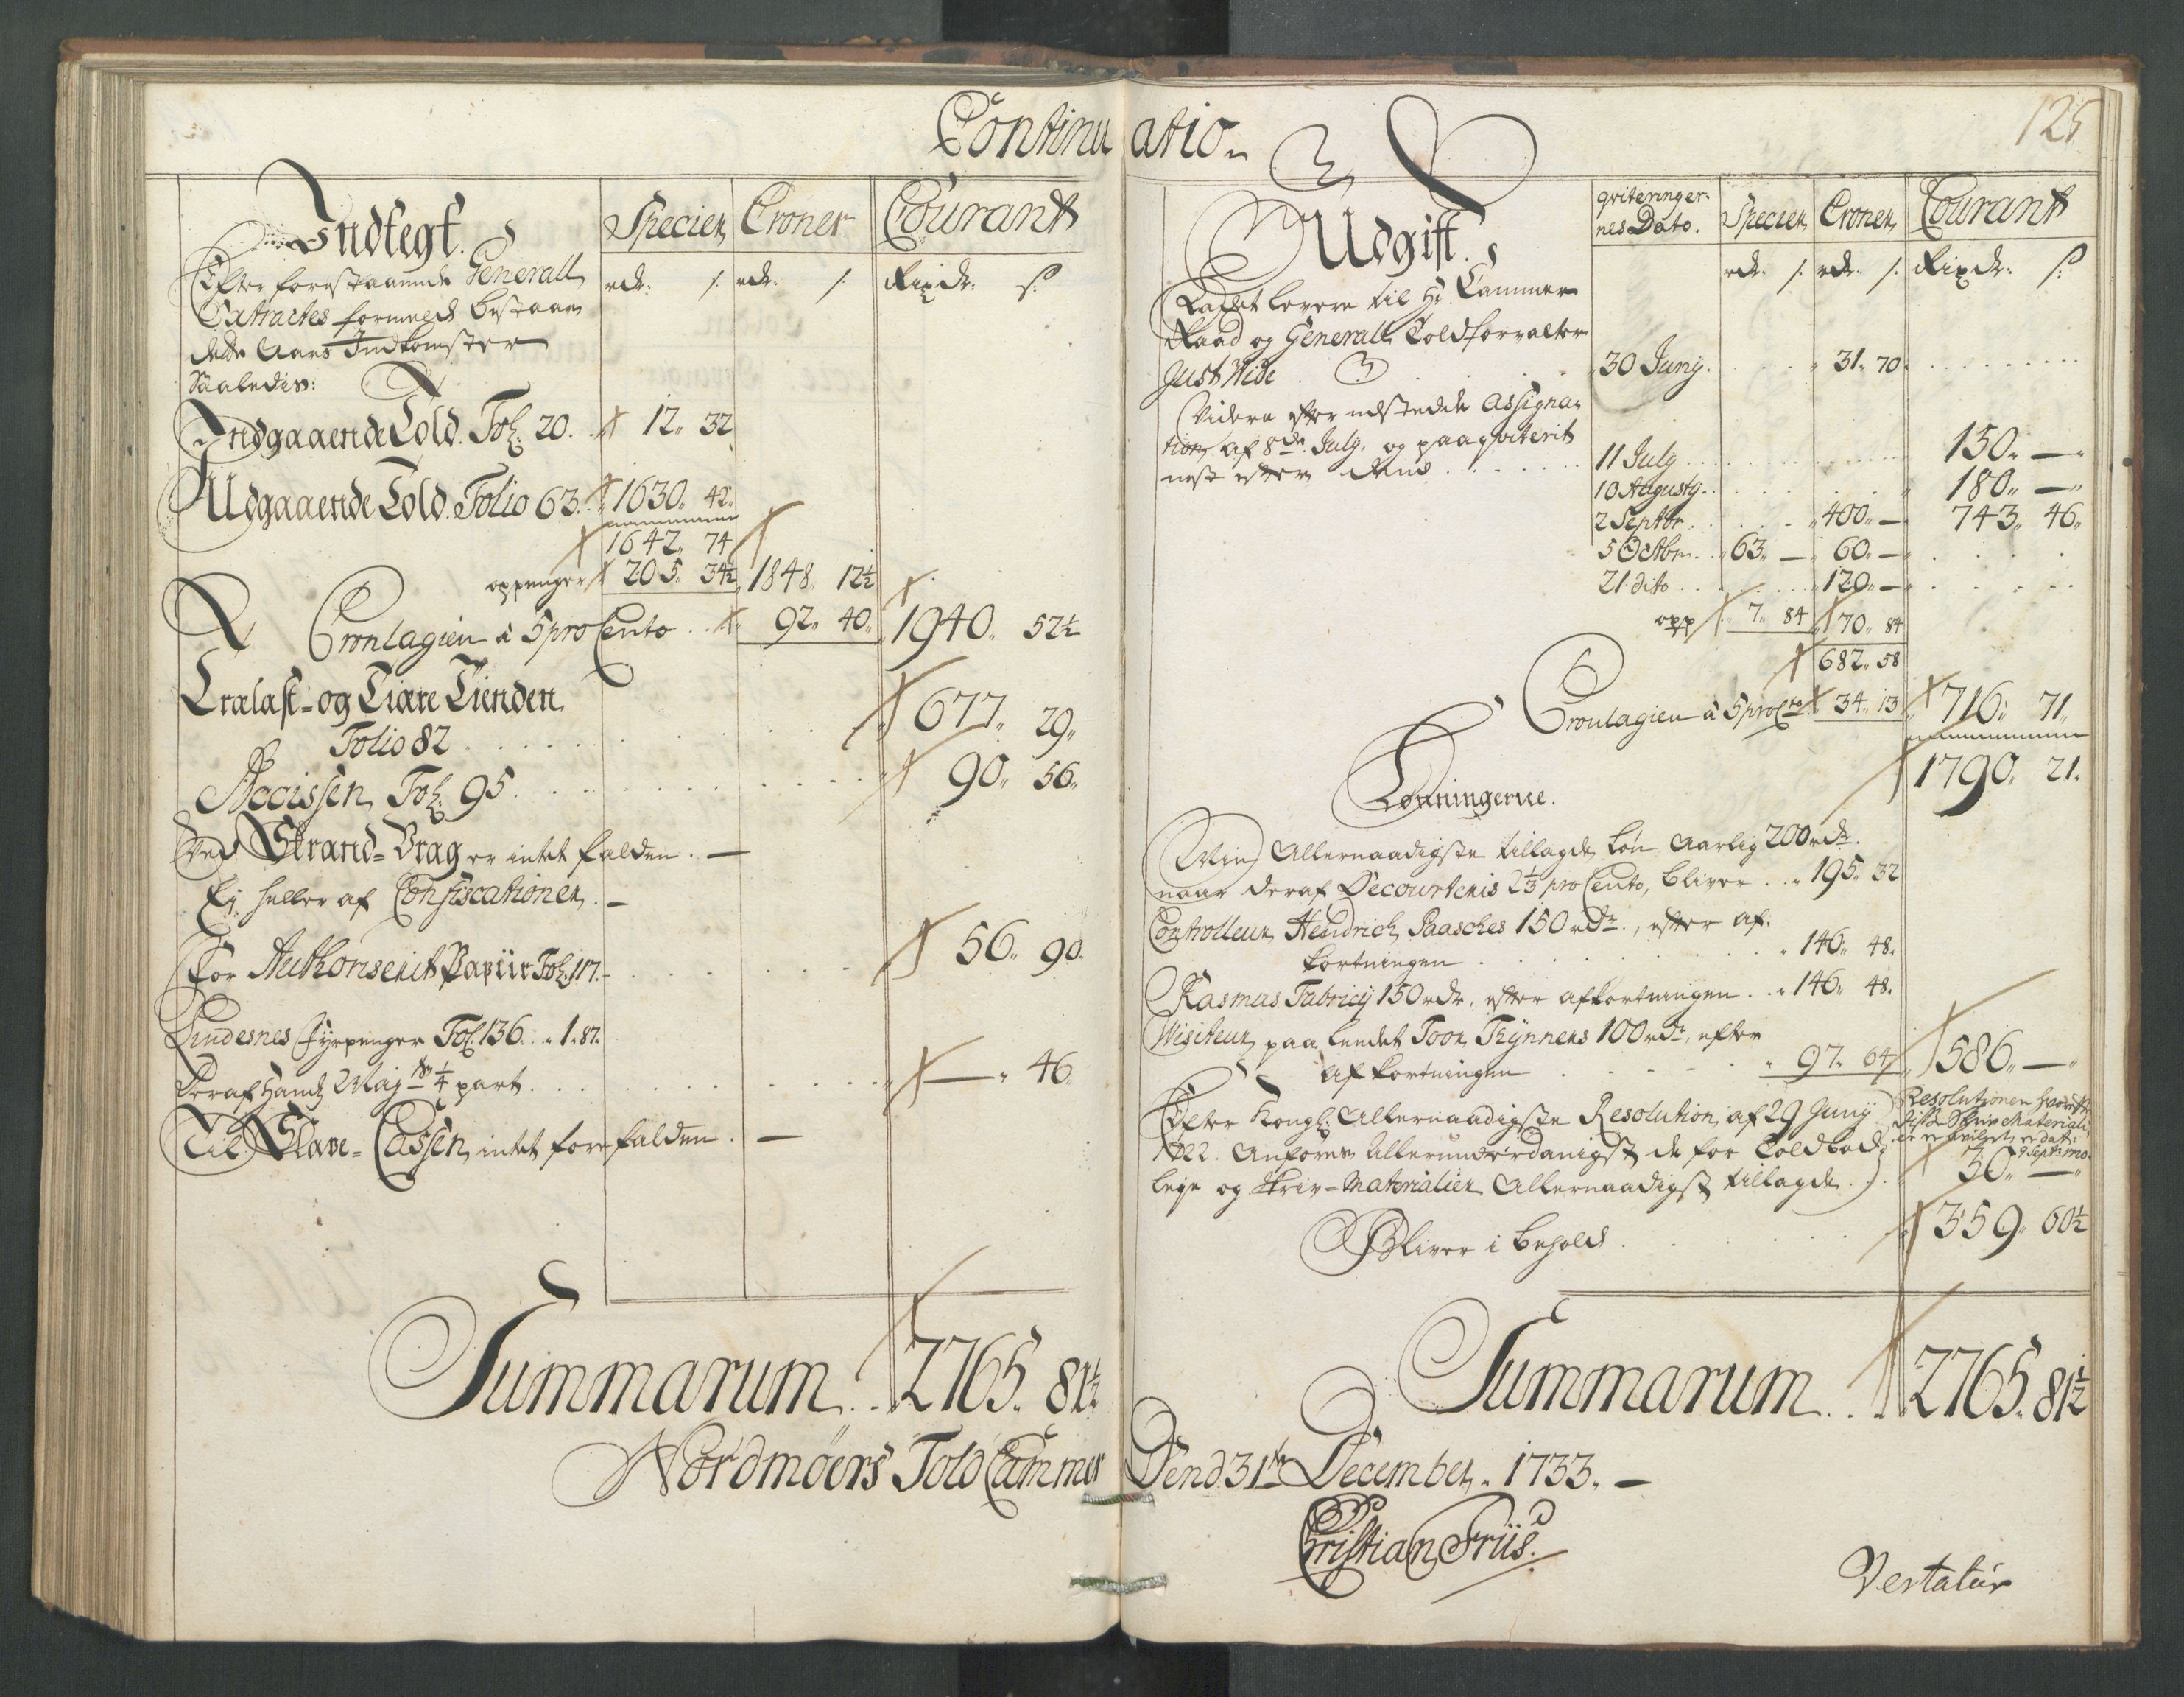 Continuatio.
125
Indtegt.
Specier Croner Courant
rdr: s. rdr: s. Rixdr: s:
Efter forestaaende Generall
Extractes formeld bestaaer
dette Aars Indkomster
Saaledis:
Indgaaende Told. Fol: 20. 12.. 32
Udgaaende Told. Folio 63. 1630.. 42..
1642.. 74
oppenger 205.. 34½ 1848.. 12½
Cronlagien à 5 pro Cento 92.. 40.. 1940.. 52½
Trælast- og Tiære Tienden
Folio 82 677.. 29..
Accissen, Fol: 95. 90.. 56..
Ved Strand-Vrag er intet falden. —
Ej heller af Confiscationer. —
For Authoriserit Papiir Fol: 117. 56.. 90.
Lindesnes Fyrpenger Fol: 136. 1. 87.
Deraf Hans Maj:ts ¼ part. — 46.
Til Slave-Cassen, intet forefalden. —
Summarum 2765. 81½
Nordmøers Told Cammer
Udgift.
qviteringer-
nes Dato. Specier Croner Courant
rdr. s. rdr. s. Rixdr: s:
Ladet levere til Hr. Cammer
Raad og Generall Toldforvalter
Just Wide 30 Junij. 31. 70.
Videre efter udstedde Assigna-
tion af 8de July, og paaqviterit
nest efter
11 July 150.. —
10 Augustij. 180.. —
2 Septbr. 400.. — 743.. 46..
5 Octbr. 63.. — 60.. —
21 dito 120.. —
opp 7.. 84 70.. 84
682.. 58
Cronlagien à 5 pro Cto 34.. 13 716.. 71..
1790.. 21.
Lønningerne.
Min Allernaadigste tillagde løn Aarlig 200 rdr.
naar deraf Decourteris 2⅓ pro Cento, bliver 195.. 32
Controlleur Hendrich Paasches 150 rdr., efter af-
kortningen 146.. 48.
Rasmus Fabricij 150 rdr, efter afkortningen 146.. 48.
Visiteur paa landet Toor Trynners 100 rdr, efter
afkortningen 97.. 64 586.. —
Efter Kongl: Allernaadigste Resolution af 29 Junij
1722. Anføres Allerunderdanigst de for Toldbod-
leje og Skriv-Materialier Allernaadigst tillagde. 30.. —
Resolutionen
Skriv Materiali-
9 Septbr
Bliver i behold 359.. 60½
Summarum 2765. 81½
Dend 31te December. 1733. —
Christian Friis.
Vertatur